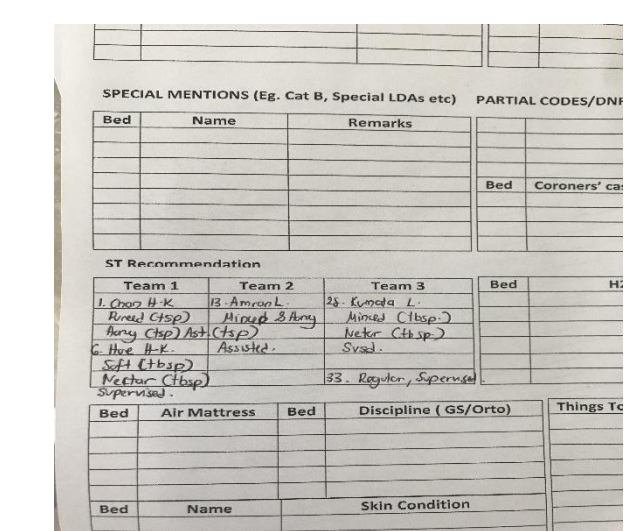 SPECIAL MENTIONS (Eg. Cat B, Special LDAs etc) PARTIAL CODES/DNR
Bed Name Remarks
Bed Coroners' cas
ST Recommendation
Team 1 Team 2 Team 3 Bed H2
1. Chan H.K 13. Amran L. 28. Kumala L.
Pureed (tsp) Minced & Hony Minced (tbsp.)
Hony (tsp) Ast. (tsp) Netar (tbsp.)
6. Hoe H.K. Assisted. Svsd.
Soft (tbsp)
Nectar (tbsp) 33. Regular, Supervised
Supervised.
Bed Air Mattress Bed Discipline ( GS/Orto) Things To
Bed Name Skin Condition